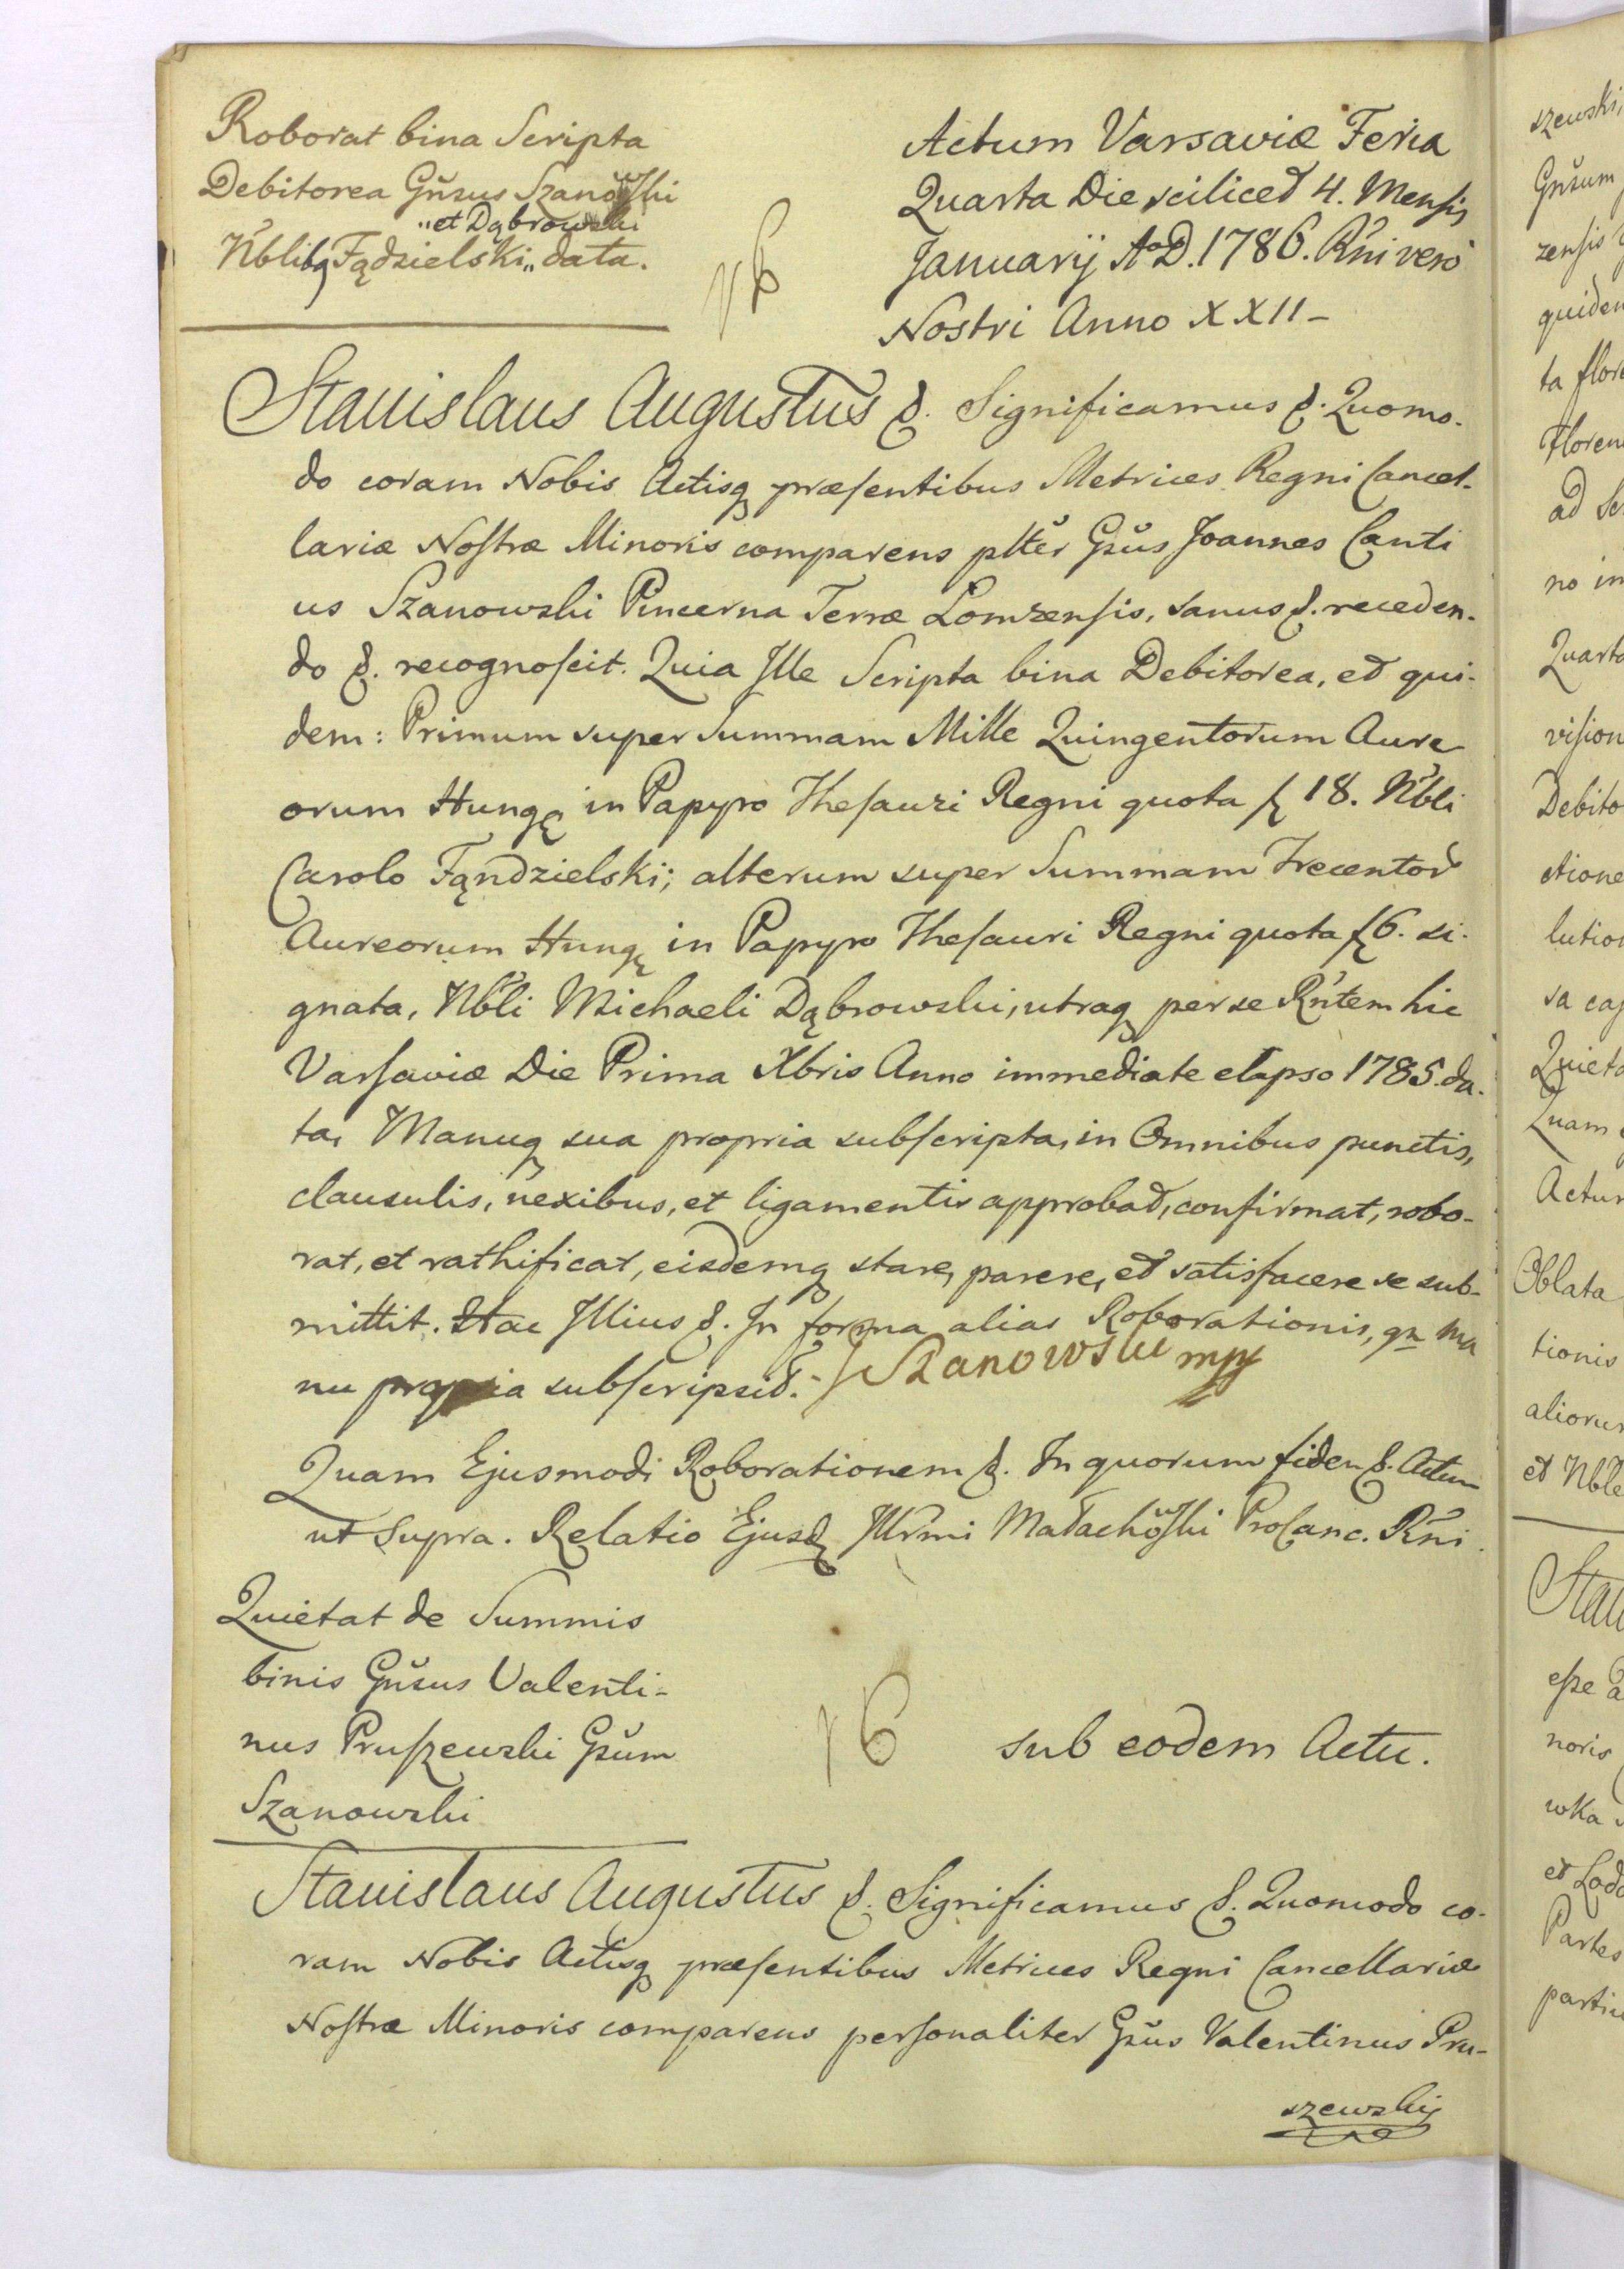 Roborat bina Scripta
Debitorea Gnsus Szanowski
„et Dąbrowski
Nblibq Fądzielski„ data.
Actum Varsaviæ Feria
Quarta Die scilicet 4. Mensis
Januarij AoD. 1786. Rni vero
Nostri Anno XXII-
Stanislaus Augustus &. Significamus &. Quomo-
do coram Nobis Actisq præsentibus Metrices Regni Cancel-
lariæ Nostræ Minoris comparens plter Gsus Joannes Canti
us Szanowski Pincerna Terræ Lomzensis, sanus &. receden-
do &. recognoscit. Quia Ille Scripta bina Debitorea, et qui-
dem: Primum super Summam Mille Quingentorum Aure
orum Hung in Papyro Thesauri Regni quota f 18. Nbli
Carolo Fąndzielski; alterum super Summam Trecentor
Aureorum Hung in Papyro Thesauri Regni quota f 6. si-
gnata, Nbli Michaeli Dąbrowski, utraq per se Rntem hic
Varsaviæ Die Prima Xbris Anno immediate elapso 1785. da-
ta, Manuq sua propria subscripta, in Omnibus punctis,
clausulis, nexibus, et ligamentis approbat, confirmat, robo-
rat, et rathificat, eisdemq stare, parere, et satisfacere se sub-
mittit. Hac Illius &. In forma alias Roborationis, qn ma
nu propria subscripsit. JSzanowski mpp
Quam Ejusmodi Roborationem &. In quorum fidem &. Actum
ut supra. Relatio Ejusd Illrmi Małachowski ProCanc. Rni.
Quietat de Summis
binis Gnsus Valenti-
nus Pruszewski Gsum
Szanowski
16
sub eodem Actu.
Stanislaus Augustus &. Significamus &. Quomodo co-
ram Nobis Actisq præsentibus Metrices Regni Cancellariæ
Nostræ Minoris comparens personaliter Gsus Valentinus Pru-
szewski
szewski,
Gnsum
zensis
quidem
ta flore
Floren
ad Sc
no im
Quarta
vision
Debito
ctione
lution
sa cap
Quieta
Quam
Actum
Oblata
tionis
aliorum
et Nble
Stan
esse
noris
wka
et Lod
Partes
partic